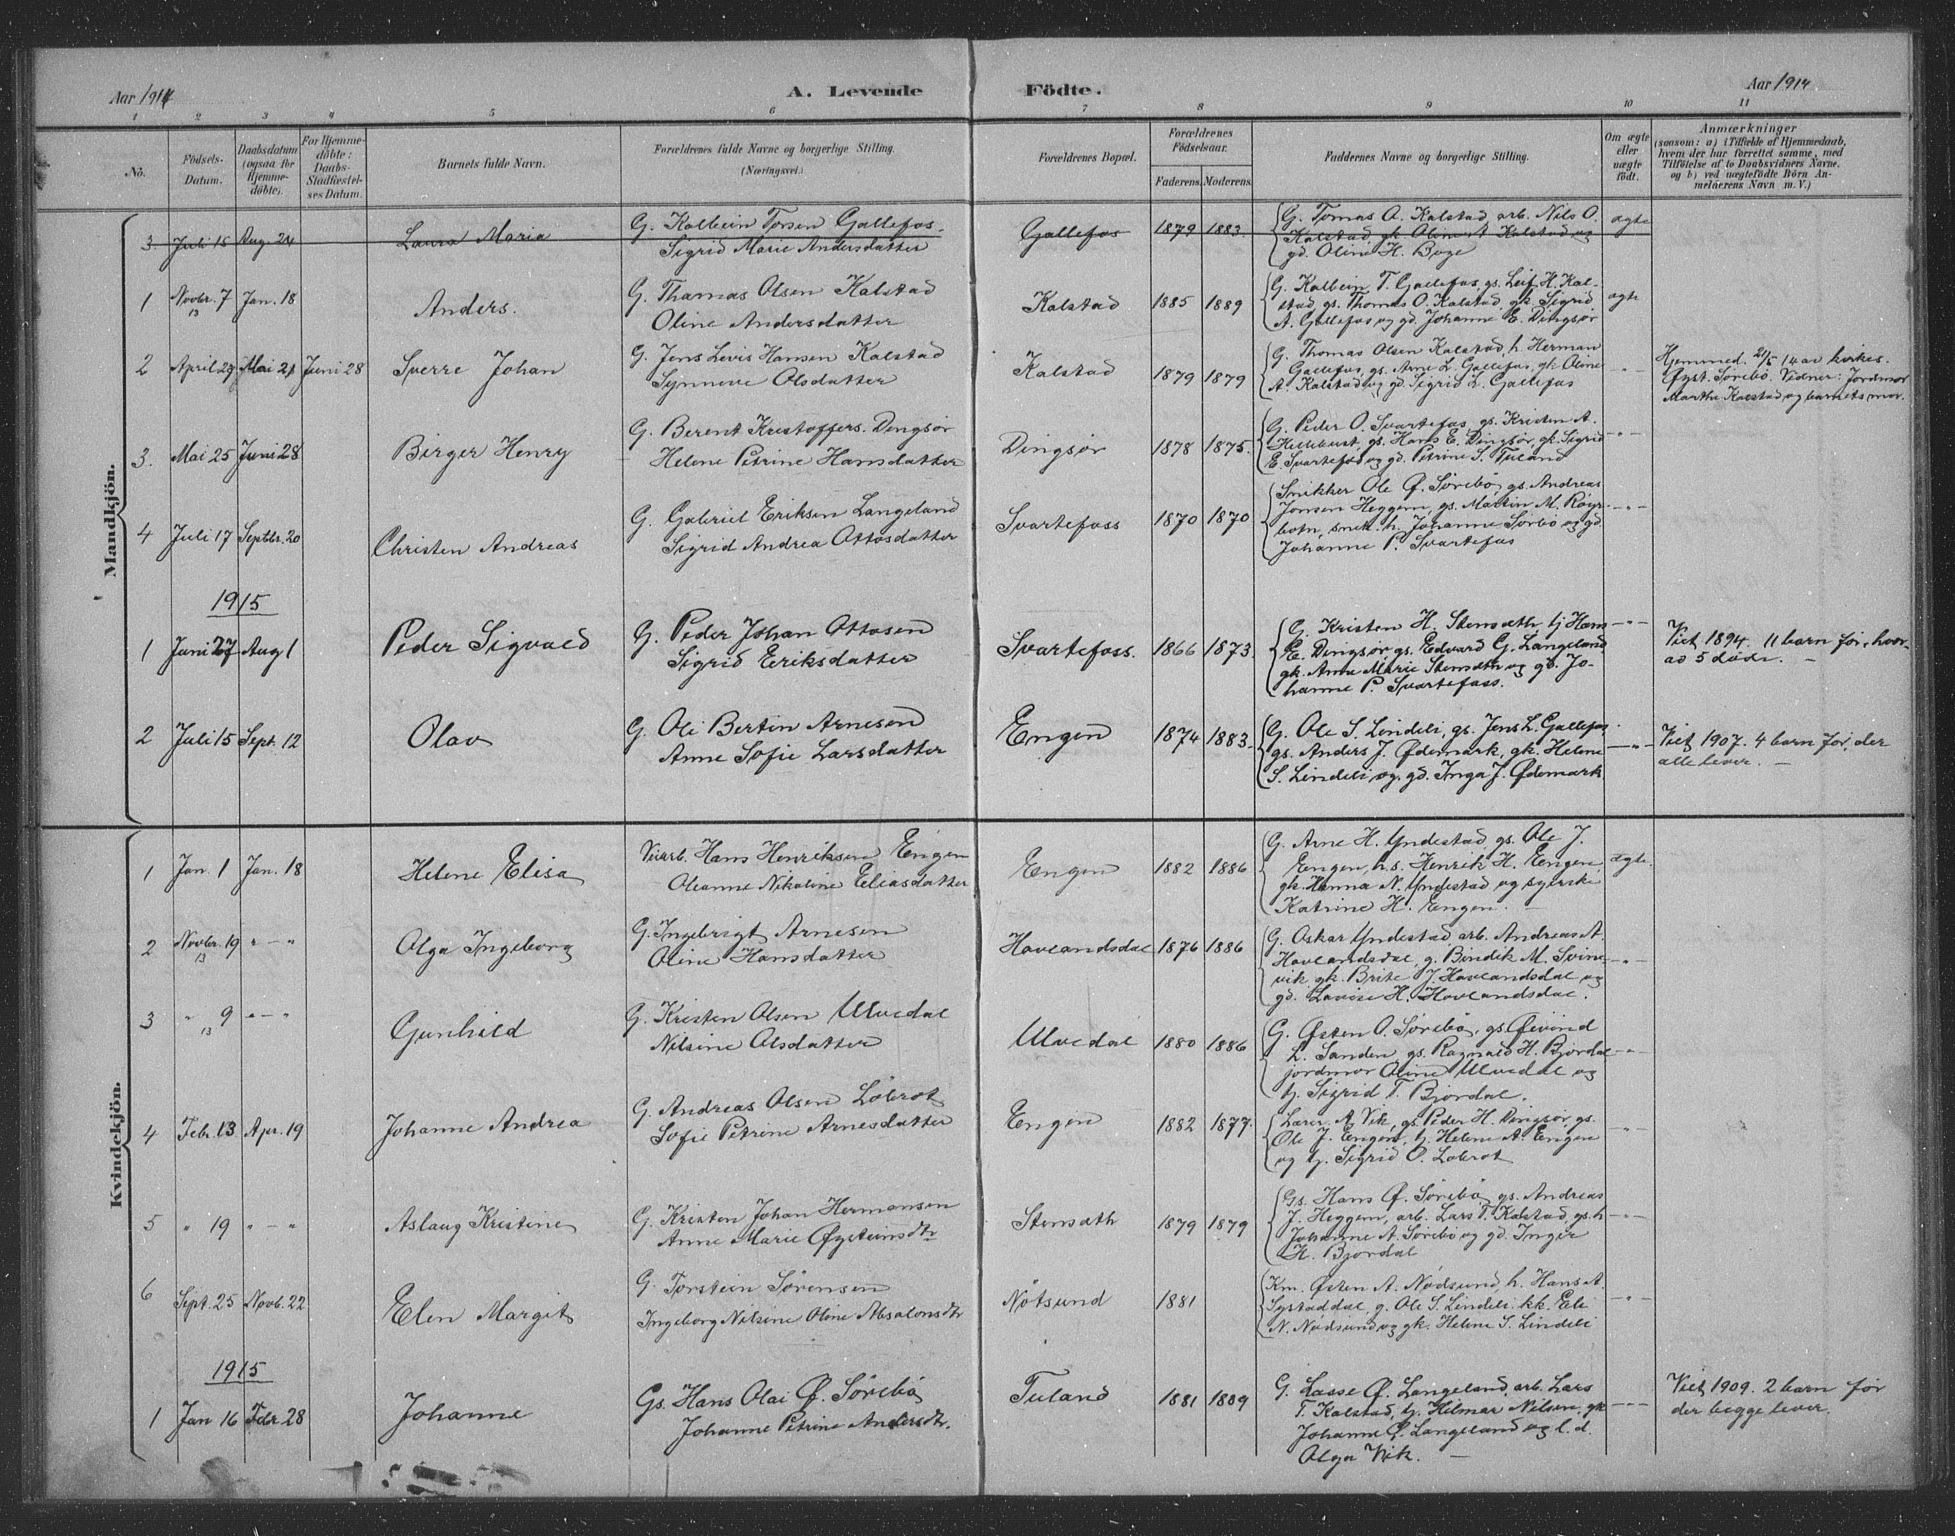 Aar 1914
A. Levende Födte.
Aar 1914
1 2 3 4 5 6 7 8 9 10 11
No.
Födsels-Datum.
Daabsdatum (ogsaa for Hjemme-döbte).
For Hjemme-döbte: Daabs-Stadfæstel-ses Datum.
Barnets fulde Navn.
Forældrenes fulde Navne og borgerlige Stilling. (Næringsvei.)
Forældrenes Bopæl.
Forældrenes Födselsaar.
Faderens. Moderens.
Faddernes Navne og borgerlige Stilling.
Om ægte eller uægte födt.
Anmærkninger
(saasom: a) i Tilfælde af Hjemmedaab, hvem der har forrettet samme, med Tilföielse af to Daabsvidners Navne, og b) ved uægtefödte Börn An-melderens Navn m. V.)
Mandkjön.
3 Juli 15 Aug 24 Laura Maria G. Kolbein Torsen Gallefos. Gallefos 1879 1883. G. Tomas O. Kalstad, arb. Nils O. ægte
Sigrid Marie Andersdatter Kalstad, gk Olinert Kalstad og
gd. Oline H. Boge
1 Novbr. 7 Jan. 18 Anders. G. Thomas Olsen Kalstad Kalstad 1885 1889 G. Kolbein T. Gallefos, gs. Leif H. Kal- ægte
13 Oline Andersdatter stad gs. Thomas O. Kalstad gk Sigrid
A. Gallefos og gd. Johanne E. Dingsør
2 April 29 Mai 21 Juni 28 Sverre Johan G. Jens Levis Hansen Kalstad Kalstad 1879 1879 G. Thomas Olsen Kalstad, h. Herman " Hjemmed. 21/5 14 av kirkes.
Synneve Olsdatter Gallefos, gs. Arne L. Gallefos, gk Oline Øyst. Sørebø. Vidner: Jordmor
A. Kalstad og gd. Sigrid L. Gallefos Marthe Kalstad og barnets mor.
3. Mai 25 Juni 28 Birger Henry G. Berent Kristoffers. Dingsør Dingsør 1878 1875. G. Peder O. Svartefos gs. Kristen A. "
Helene Petrine Hansdatter Hellebust, gs. Hans E. Dingsør, gk. Sigrid
E. Svartefos og gd. Petrine S. Tuland
4 Juli 17 Septbr. 20 Christen Andreas G. Gabriel Eriksen Langeland Svartefoss 1870 1870 Snikker Ole Ø. Sørebø, gs. Andreas "
Sigrid Andrea Ottosdatter Jonsen Heggem, gs. Martin M. Røyr-
botn, snik. h. Johanne Sørbø og gd.
Johanne P. Svartefos
1915
1 Juni 27 Aug 1 Peder Sigvald G. Peder Johan Ottosen Svartefoss. 1866 1873. G. Kristen H. Stensæth tj Hans " Viet 1894. 11 barn før, hvor-
Sigrid Eriksdatter E. Dingsør gs. Edvard G. Langeland av 5 døde. —
gk. Anne Marie Stensæth og gd. Jo-
hanne P. Svartefoss.
2 Juli 15 Sept. 12 Olav G. Ole Bertin Arnesen Engen 1874 1883. G. Ole S. Lindeli, gs. Jens L. Gallefos " Viet 1907. 4 barn før, der
Anne Sofie Larsdatter gs. Anders J. Ødemark, gk. Helene alle lever. —
S. Lindeli og gd. Inga J. Ødemark
Kvindekjön.
1 Jan. 1 Jan. 18 Helene Elisa Veiarb. Hans Henriksen Engen Engen 1882 1886 G. Arne H. Yndestad gs. Ole J. ægte.
Oleanne Nikoline Eliasdatter Engen, h.s. Henrik H. Engen,
gk. Hanna N. Yndestad og syerske
Katrine H. Engen.
2 Novbr. 19 " — " Olga Ingeborg G. Ingebrigt Arnesen Hovlandsdal 1876 1886 G. Oskar Yndestad arb. Andreas A. "
13 Oline Hansdatter Hovlandsdal, g. Bendik M. Svine-
vik gk. Brite J. Hovlandsdal og
gd. Lavise H. Hovlandsdal.
3 " 9 " — " Gunhild G. Kristen Olsen Ulvedal Ulvedal 1880 1886 G. Østen O. Sørebø, gs. Øivind
13 Nilsine Olsdatter L. Sanden gs. Ragnald H. Bjordal "
jordmor Oline Ulvedal og
tj. Sigrid T. Bjordal.
4 Febr. 13 Apr. 19 Johanne Andrea G. Andreas Olsen Løkrot Engen 1882 1877. Lærer A. Vik, gs. Peder H. Dingsør, gs. "
Sofie Petrine Arnesdatter Ole J. Engen, tj. Helene A. Engen
og tj. Sigrid O. Løkrot
5 " 19 " — " Aslaug Kristine G. Kristen Johan Hermansen Stensæth 1879 1879 Gs. Hans Ø. Sørebø, gs. Andreas "
Anne Marie Øysteinsdtr J. Heggem, arb. Lars T. Kalstad, gs. h
Johanne A. Sørebø og gd. Inger
H. Bjordal
6 Sept. 25 Novb. 22 Elen Margit G. Torstein Sørensen Nøtsund 1881 Km. Østen A. Nødsund, h. Hans A. "
Ingeborg Nilsine Oline Absalonsdtr Systaddal, g. Ole S. Lindeli kk. Eli
N. Nødsund og gk. Helene S. Lindeli
1915
1 Jan 16 Febr. 28 Johanne Gs. Hans Olai Ø. Sørebø Tuland 1881 1889 G. Lasse Ø. Langeland, arb. Lars " Viet 1909. 2 barn før
Johanne Petrine Andersdtr. T. Kalstad, tj. Hilmar Nilsen, gk der begge lever.
Johanne Ø. Langeland og l. d.
Olga Vik. —